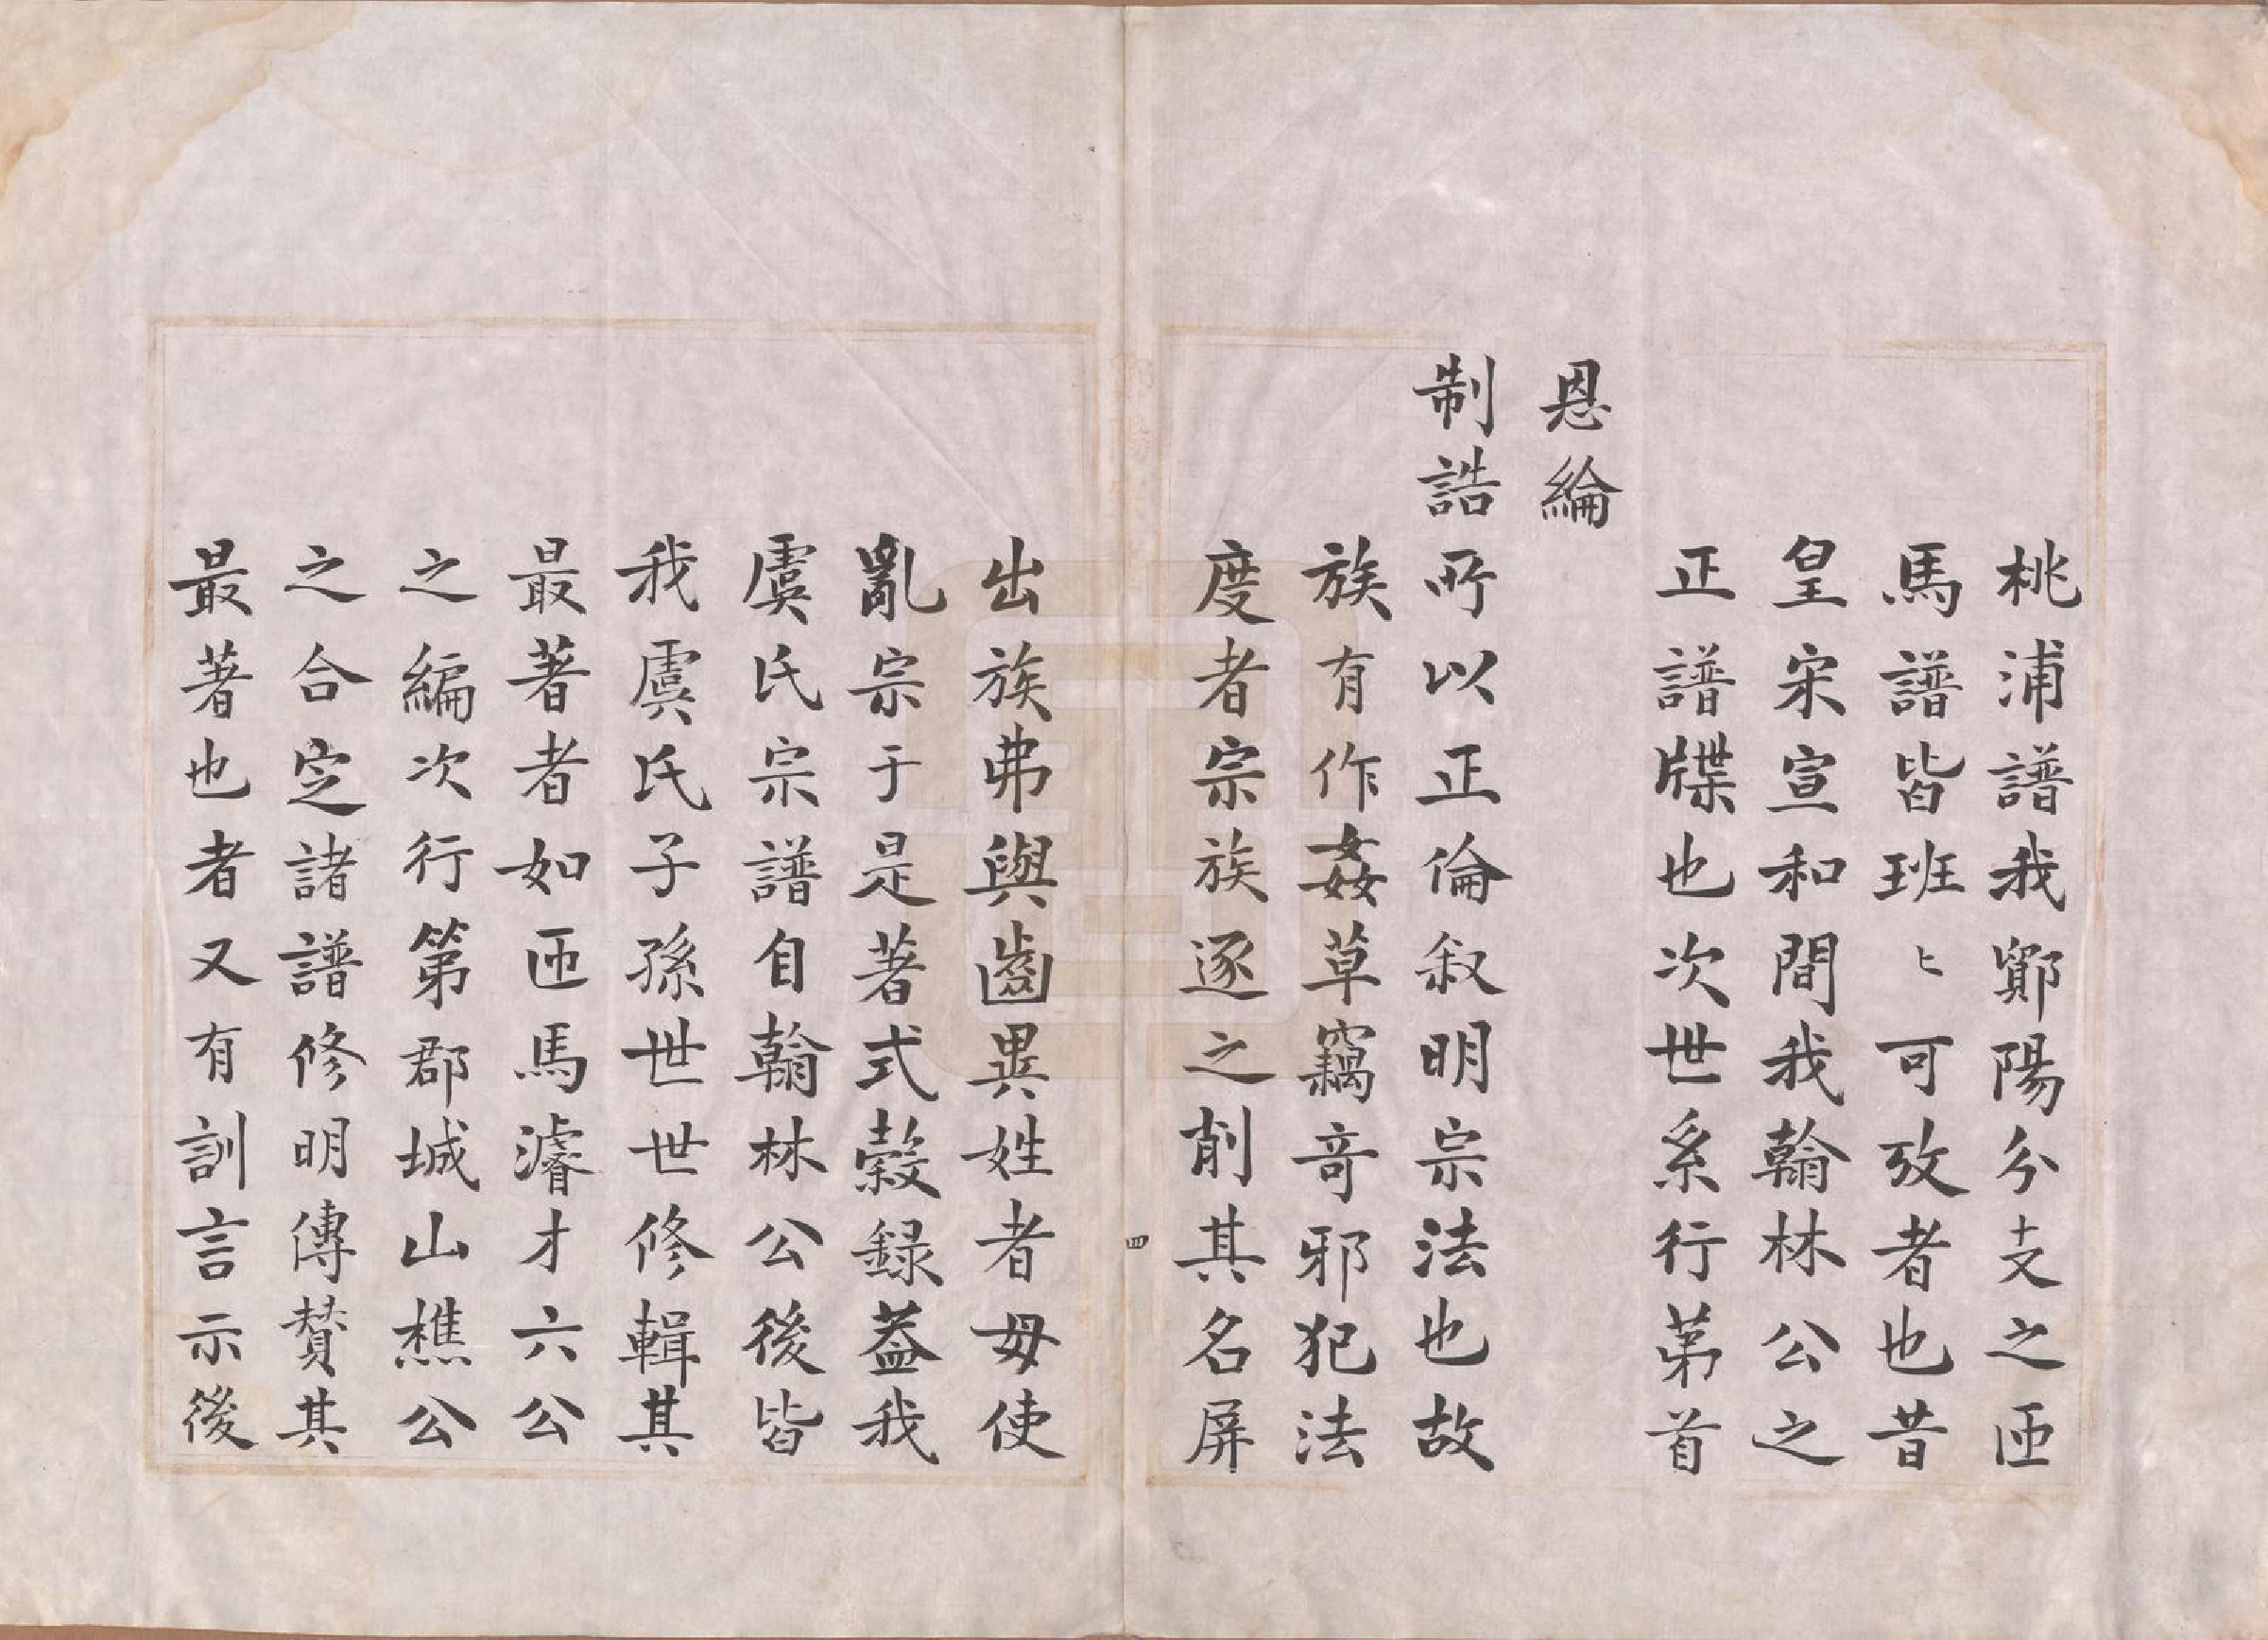 桃浦譜我鄮陽分支之匝
馬譜皆班〻可攷者也昔
皇宋宣和間我翰林公之
正譜牒也次世系行第首
恩綸
制誥所以正倫叙明宗法也故
族有作姦草竊竒邪犯法
度者宗族逐之削其名屏
四
出族弗與齒異姓者毋使
亂宗于是著式穀録葢我
虞氏宗譜自翰林公後皆
我虞氏子孫世世修輯其
最著者如匝馬濬才六公
之編次行第郡城山樵公
之合定諸譜修明傳賛其
最著也者又有訓言示後